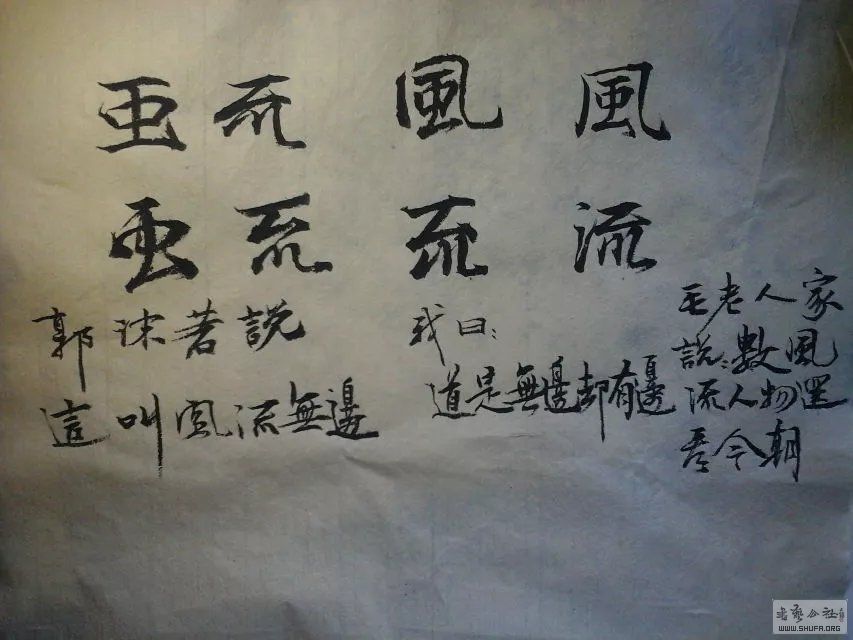 䖝 㐬 風 風
䖝 㐬 㐬 流
郭沫著說
這叫風流無邊
我曰：
道是無邊却有邊
毛老人家
說：數風
流人物還
看今朝
WWW.SHUFA.ORG